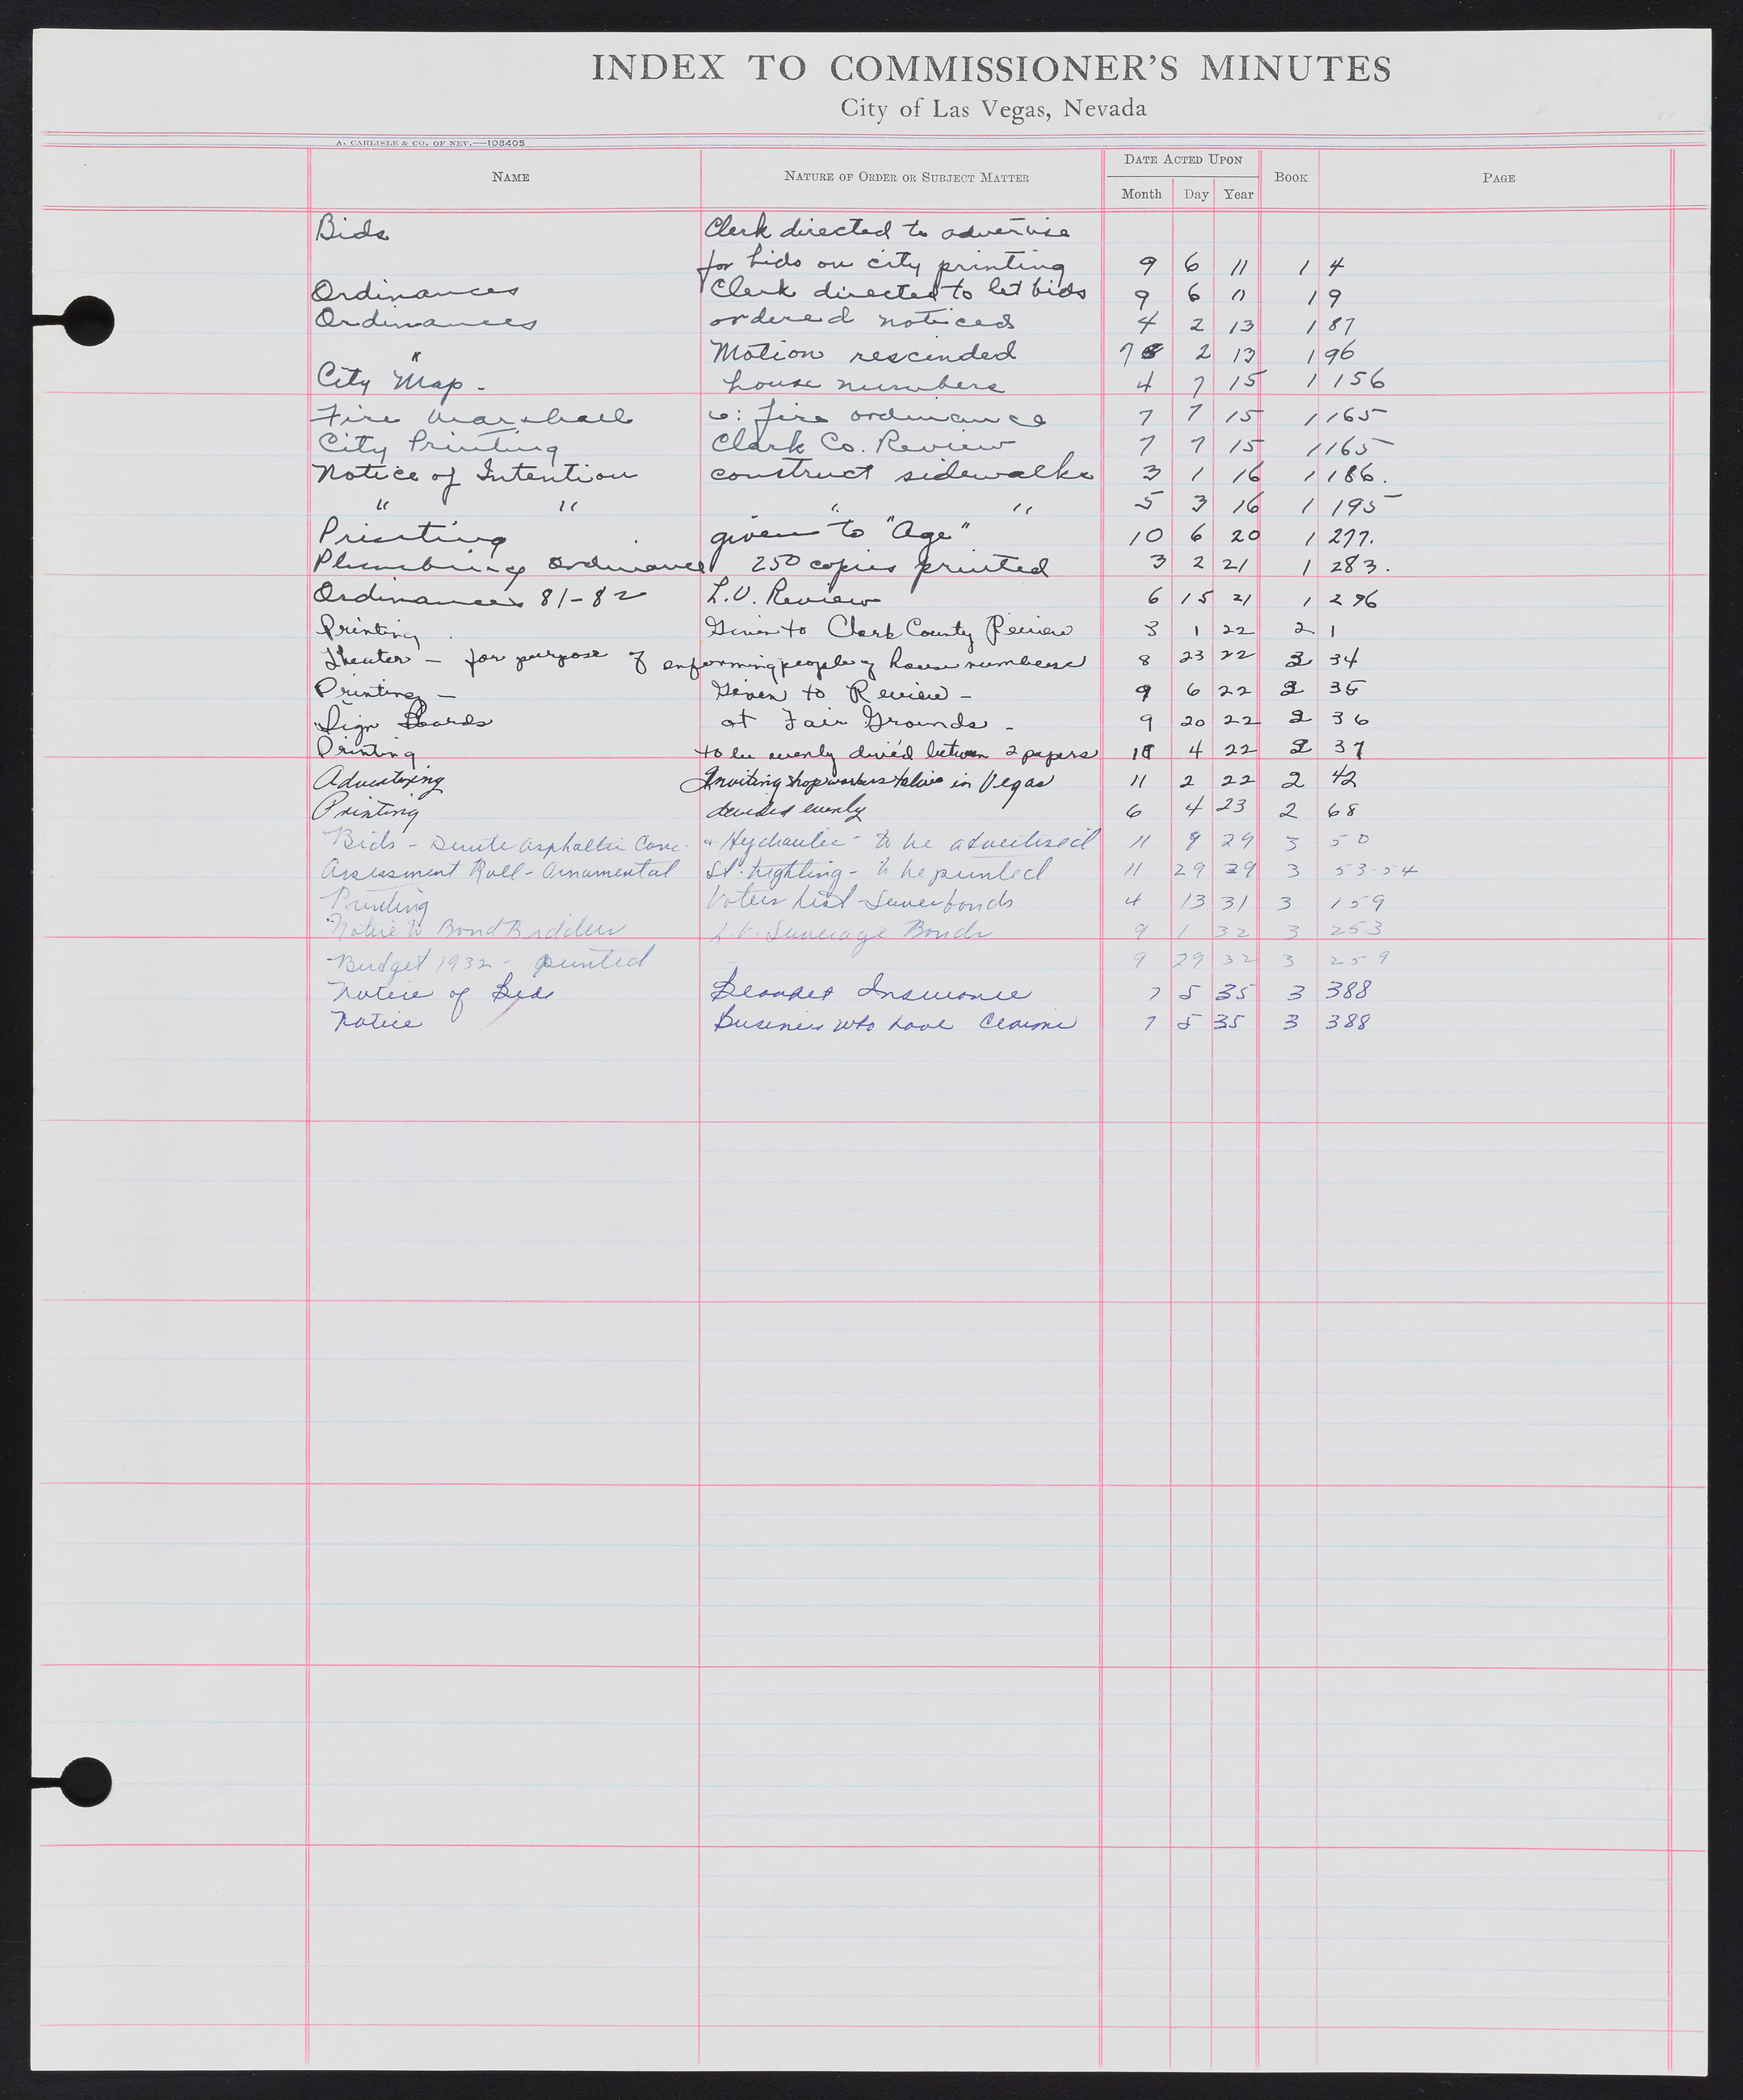 INDEX TO COMMISSIONER'S MINUTES
City of Las Vegas, Nevada
A. CARLISLE & CO. OF NEV.—108405
NAME NATURE OF ORDER OR SUBJECT MATTER DATE ACTED UPON BOOK PAGE
Month Day Year
Bids Clerk directed to advertise
for bids on city printing 9 6 11 1 4
Ordinances Clerk directed to let bids 9 6 11 1 9
Ordinances ordered noticed 4 2 13 1 87
" Motion rescinded 7 2 13 1 96
City Map - house numbers 4 7 15 1 156
Fire Marshall fire ordinance 7 7 15 1 165
City Printing Clark Co. Review 7 7 15 1 165
Notice of Intention construct sidewalks 3 1 16 1 186.
" " " " 5 3 16 1 195
Printing given to "Age" 10 6 20 1 277.
Plumbing Ordinance 250 copies printed 3 2 21 1 283.
Ordinances 81-82 L.V. Review 6 15 21 1 296
Printing Given to Clark County Review 3 1 22 2 1
Theater - for purpose of enforming people of house numbers 8 23 22 2 34
Printing - Given to Review - 9 6 22 2 35
Sign Boards at Fair Grounds - 9 20 22 2 36
Printing to be evenly divied between 2 papers 10 4 22 2 37
Advertising Inviting shop workers to live in Vegas 11 2 22 2 42
Printing devided evenly 6 4 23 2 68
Bids - Asphaltic Conc. & Hydraulic - to be advertised 11 9 29 3 50
Assessment Roll - Ornamental St. Lighting - to be printed 11 29 29 3 53-54
Printing Voters List - Sewer bonds 4 13 31 3 159
Notice to Bond Bidders L.V. Sewerage Bonds 9 1 32 3 253
Budget 1932 - printed 9 29 32 3 259
Notice of Bids Blanket Insurance 7 5 35 3 388
Notice Business who have Claims 7 5 35 3 388